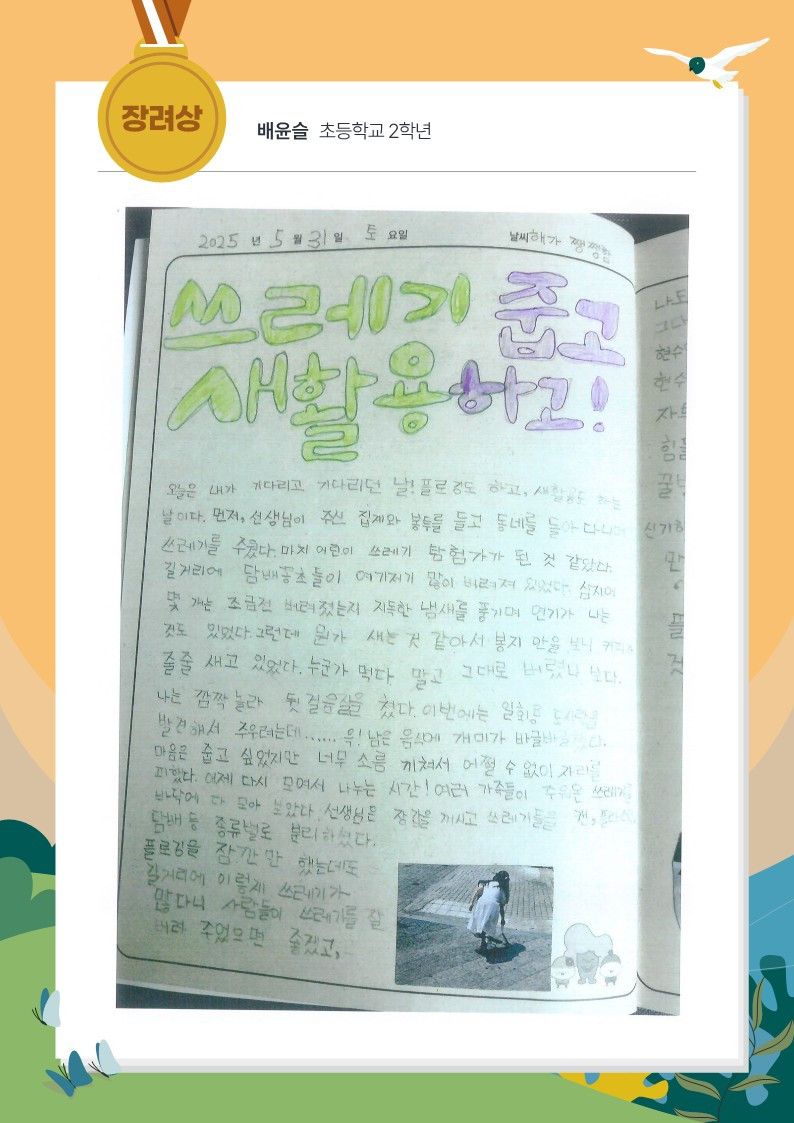 장려상
배윤슬 초등학교 2학년
2025 년 5 월 31 일 토 요일 날씨 해가 쨍쨍함
쓰레기 줍고
새활용하고!
오늘은 내가 기다리고 기다리던 날! 플로깅도 하고, 새활용도 하는
날이다. 먼저, 선생님이 주신 집게와 봉투를 들고 동네를 돌아다니며
쓰레기를 주웠다. 마치 어린이 쓰레기 탐험가가 된 것 같았다.
길거리에 담배꽁초들이 여기저기 많이 버려져 있었다. 심지어
몇 개는 조금전 버려졌는지 지독한 냄새를 풍기며 연기가 나는
것도 있었다. 그런데 뭔가 새는 것 같아서 봉지 안을 보니 커피가
줄줄 새고 있었다. 누군가 먹다 말고 그대로 버렸나 보다.
나는 깜짝 놀라 뒷걸음질을 쳤다. 이번에는 일회용 도시락을
발견해서 주우려는데...... 윽! 남은 음식에 개미가 바글바글했다.
마음은 줍고 싶었지만 너무 소름 끼쳐서 어쩔 수 없이 자리를
피했다. 이제 다시 모여서 나누는 시간! 여러 가족들이 주워온 쓰레기를
바닥에 다 모아 놓았다. 선생님은 장갑을 끼시고 쓰레기들을 캔, 플라스틱,
담배 등 종류별로 분리하셨다.
플로깅을 잠깐만 했는데도
길거리에 이렇게 쓰레기가
많다니 사람들이 쓰레기를 잘
버려 주었으면 좋겠고,
그다
현수
현수
힘들
신기하